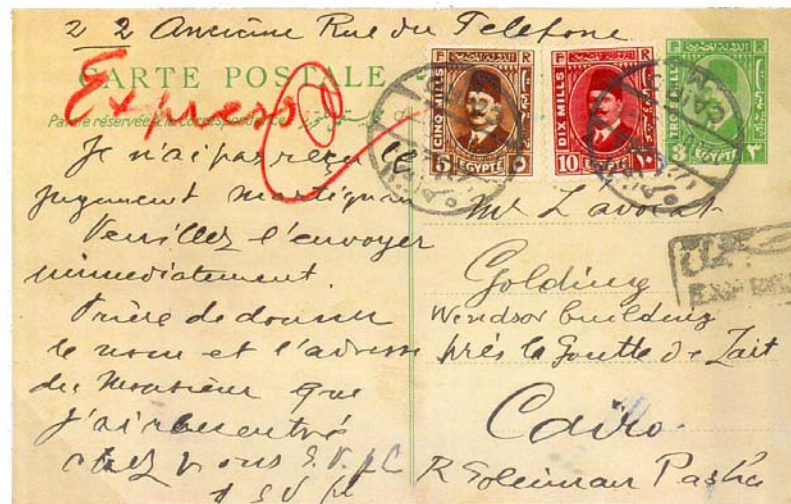 2 2 Ancienne Rue du Telefone
CARTE POSTALE
Express
Partie réservée à la correspondance
Je n'ai pas reçu le
jugement Martignan
Veuillez l'envoyer
immediatement.
Prière de donner
le nom et l'adresse
du Monsieur que
j'ai rencontré
chez vous S.V.pl
S V pl
CINQ MILLS
5 EGYPTE ٥
DIX MILLS
10 EGYPTE ١٠
TROIS MILLS
3 EGYPTE ٣
Mr L'avocat
Golding
Windsor building
près la Goutte de Lait
Cairo
R Soleiman Pasha
EXPRES